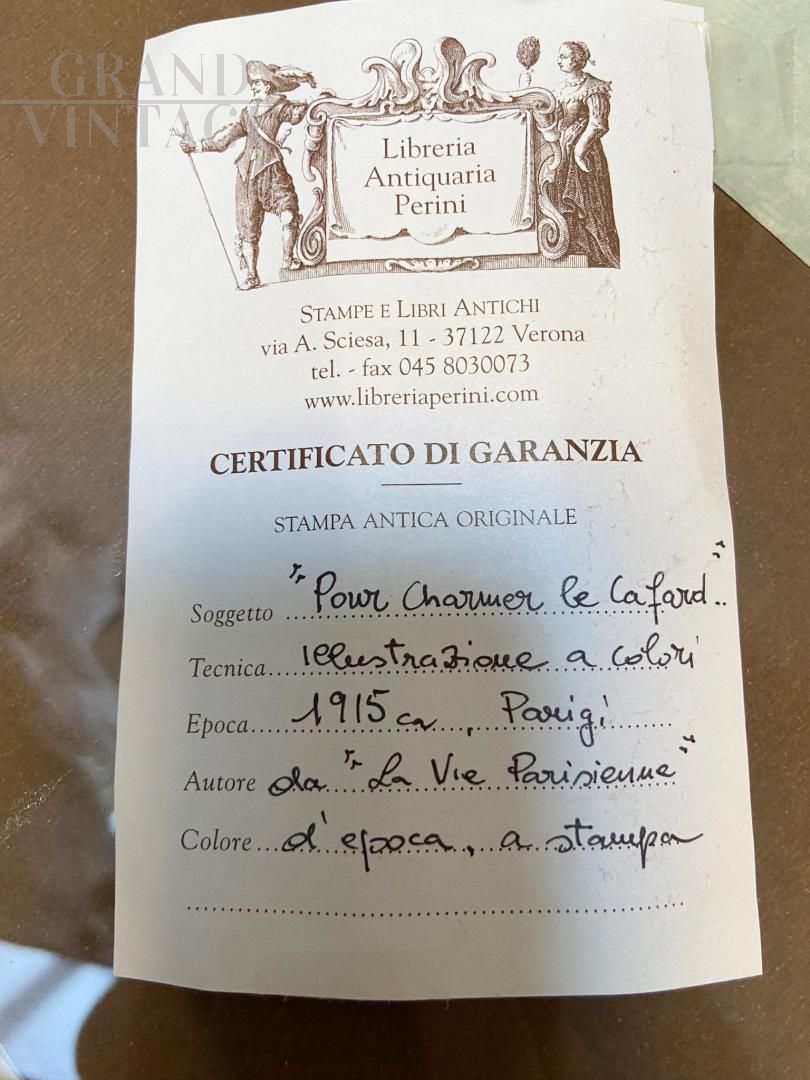 GRAND
VINTAGE
Libreria
Antiquaria
Perini
STAMPE E LIBRI ANTICHI
via A. Sciesa, 11 - 37122 Verona
tel. - fax 045 8030073
www.libreriaperini.com
CERTIFICATO DI GARANZIA
STAMPA ANTICA ORIGINALE
Soggetto "Pour Charmer le Cafard.."
Tecnica... illustrazione a colori
Epoca.... 1915 ca, Parigi
Autore da "La Vie Parisienne"
Colore... d'epoca, a stampa